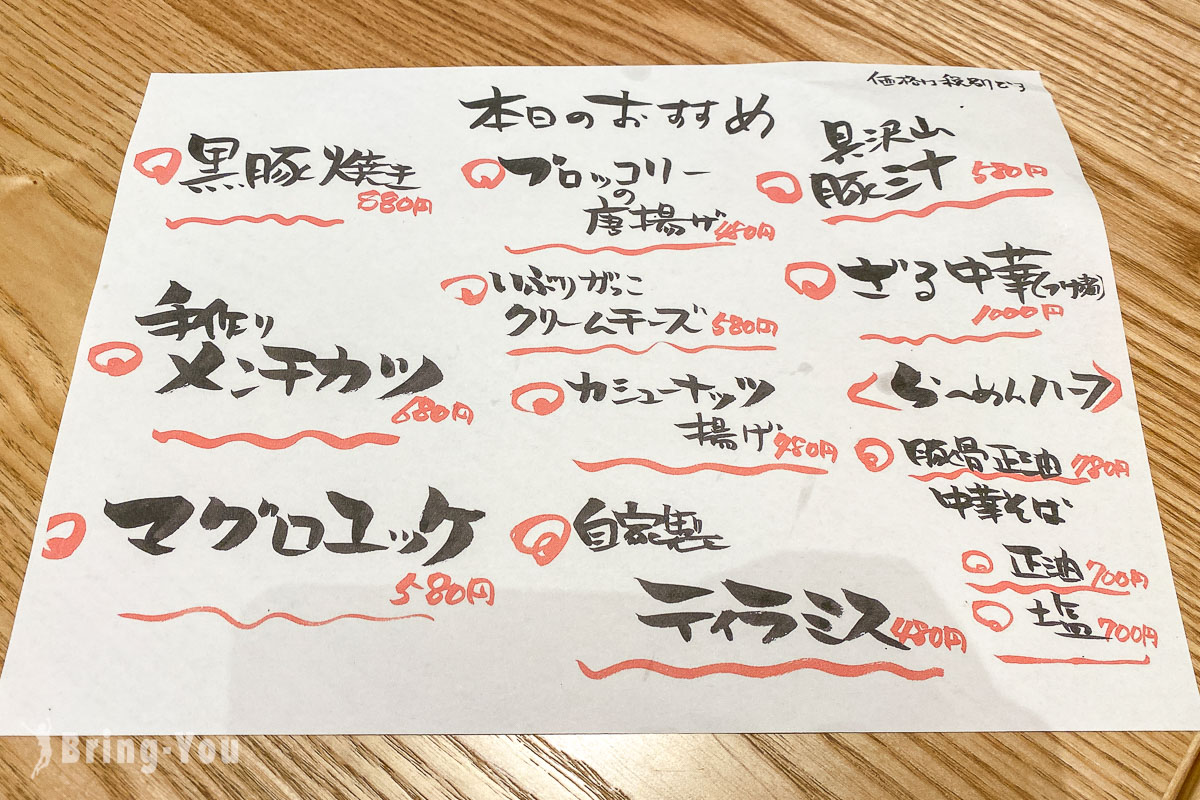 価格は税別です
本日のおすすめ
黒豚焼き
880円
手作り
メンチカツ
680円
マグロユッケ
580円
ブロッコリー
の
唐揚げ 480円
いぶりがっこ
クリームチーズ 580円
カシューナッツ
揚げ 480円
自家製
ティラミス 480円
具沢山
豚汁 580円
ざる中華(つけ麺)
1000円
<らーめんハーフ>
豚骨正油 780円
中華そば
正油 700円
塩 700円
Bring-You